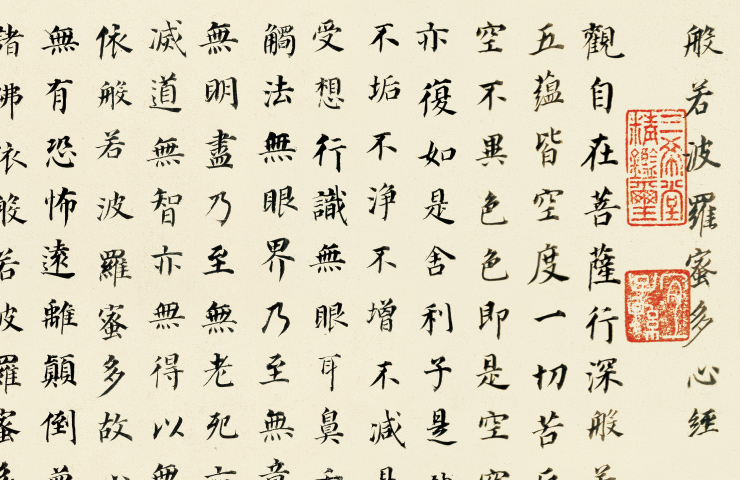 般若波羅蜜多心經
三希堂精鑑璽
宜子孫
觀自在菩薩行深般若
五蘊皆空度一切苦
空不異色色即是空空
亦復如是舍利子是
不垢不淨不增不減是
受想行識無眼耳鼻舌
觸法無眼界乃至無意
無明盡乃至無老死亦
滅道無智亦無得以無
依般若波羅蜜多故
無有恐怖遠離顛倒夢
諸佛依般若波羅蜜多